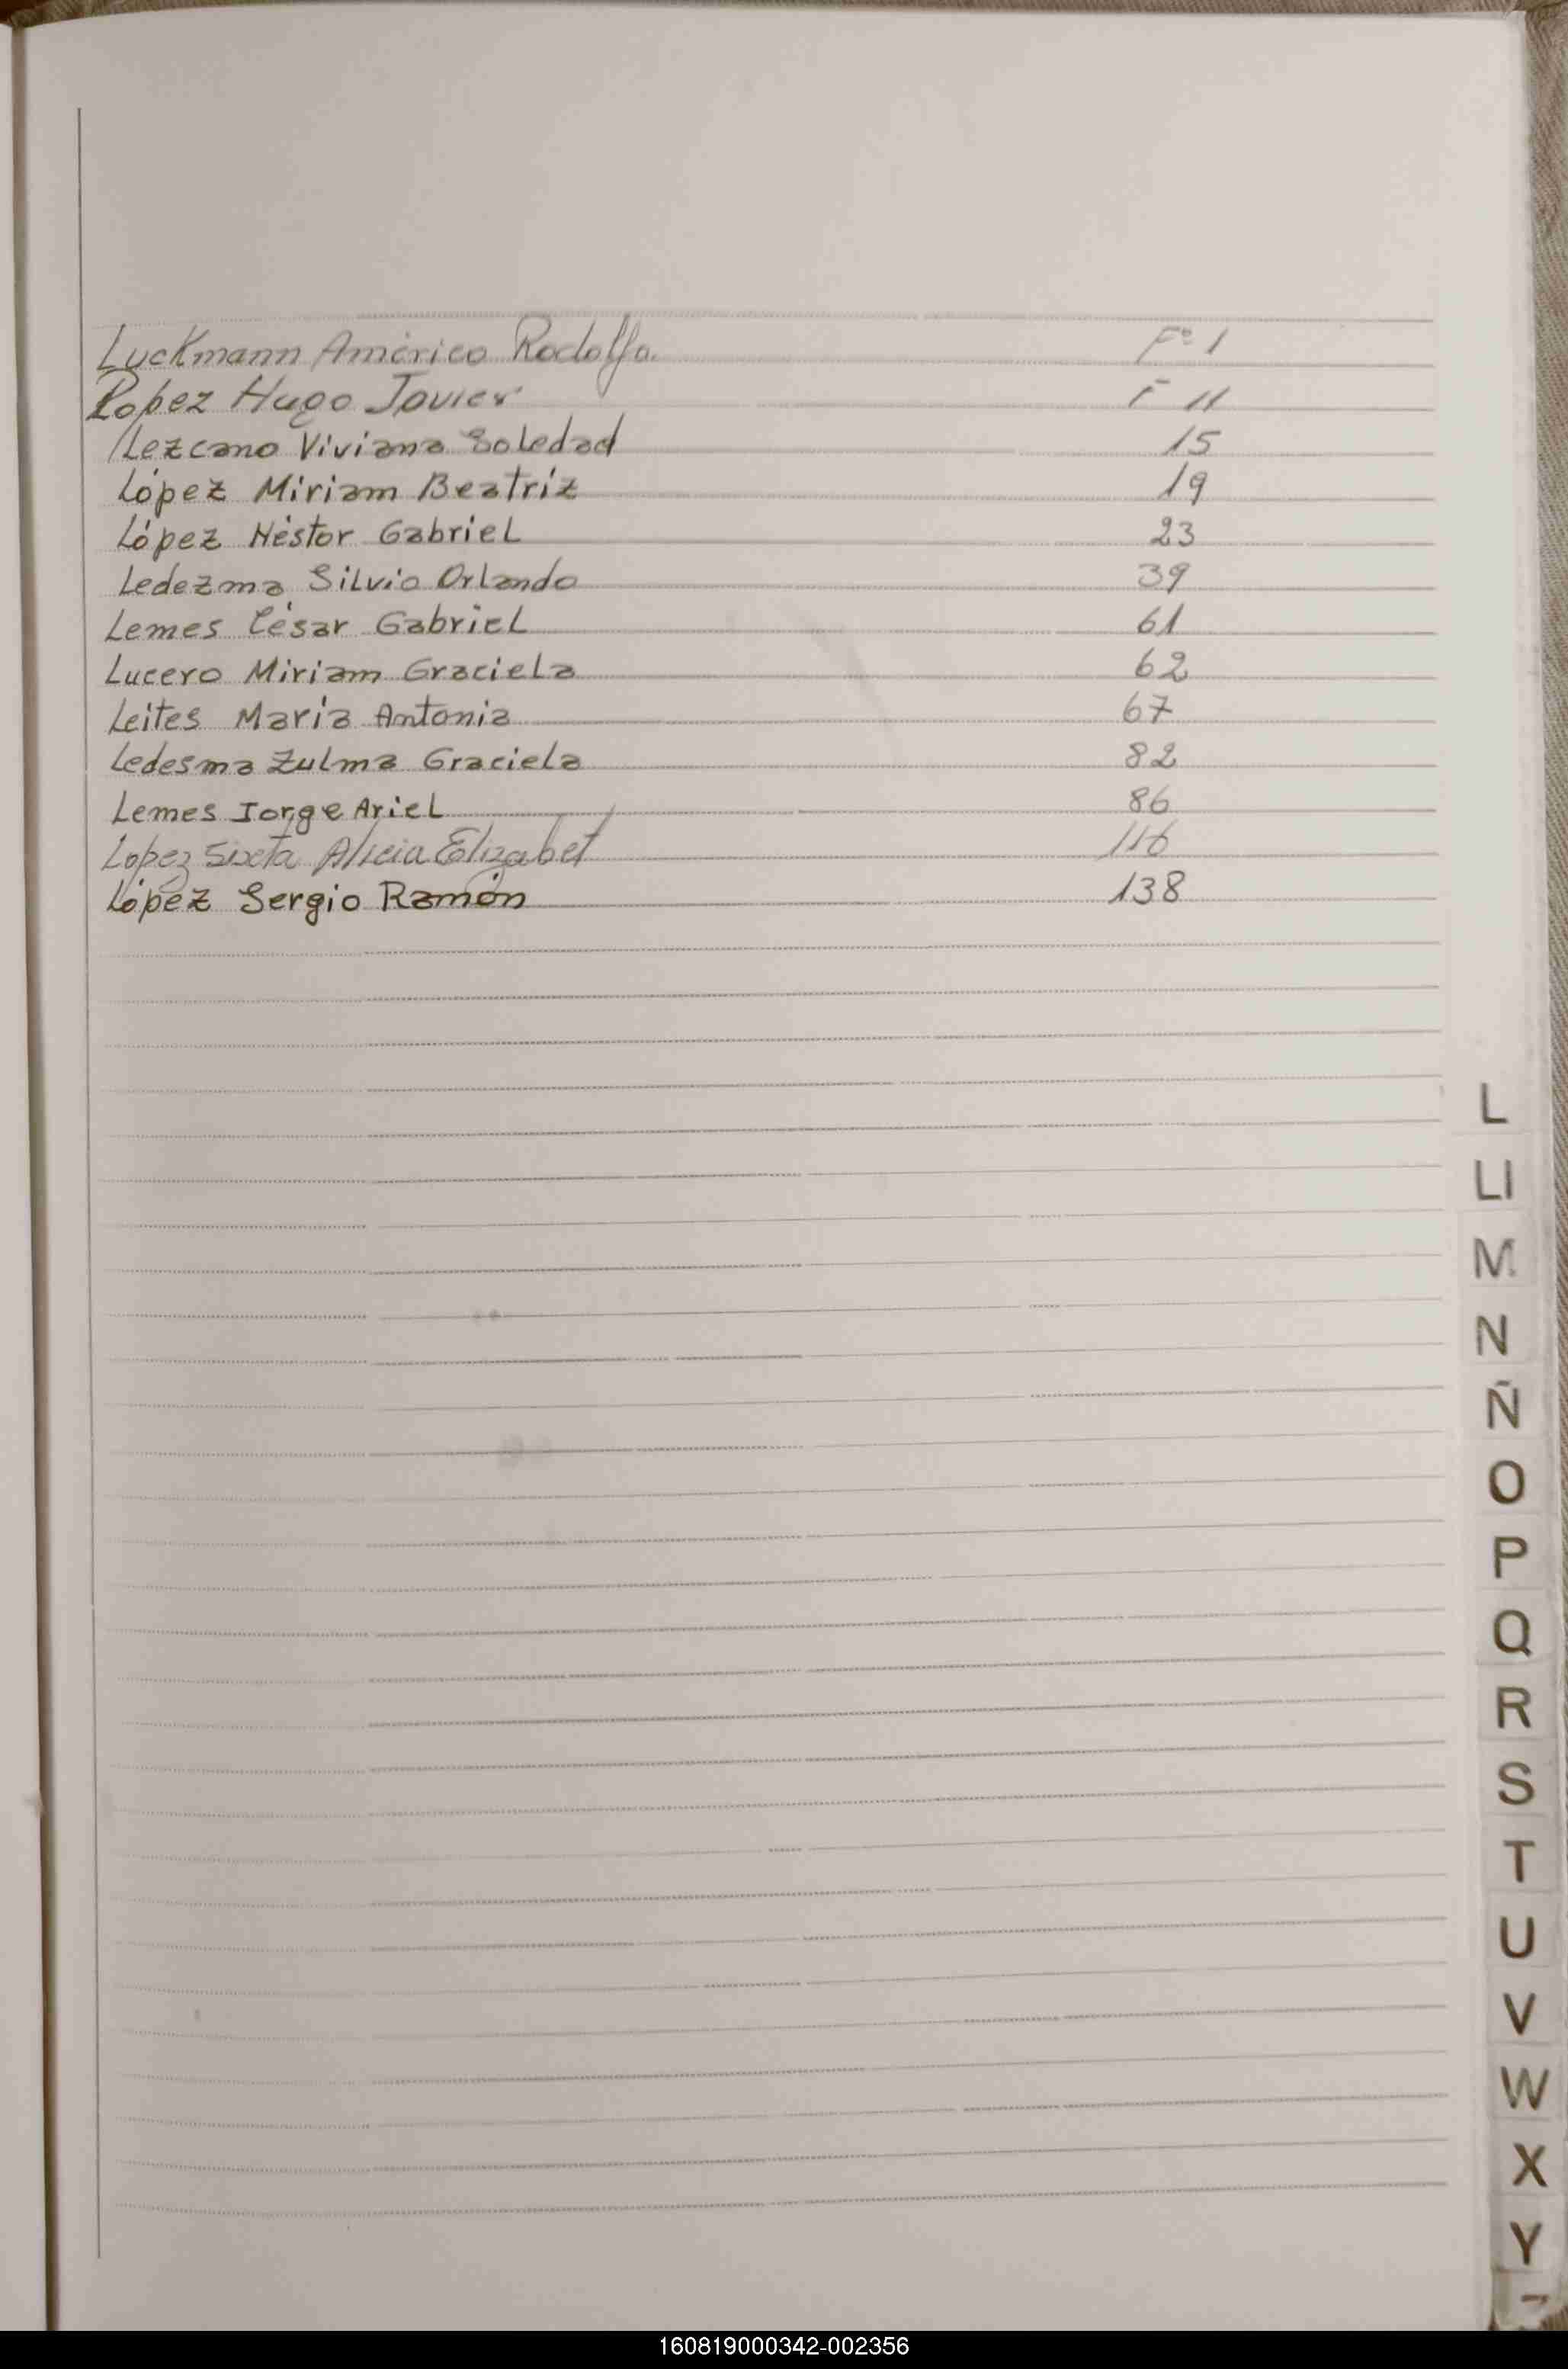 Luckmann Américo Rodolfo. Fº 1
Lopez Hugo Javier F 11
Lezcano Viviana Soledad 15
López Miriam Beatriz 19
López Néstor Gabriel 23
Ledezma Silvio Orlando 39
Lemes César Gabriel 61
Lucero Miriam Graciela 62
Leites María Antonia 67
Ledesma Zulma Graciela 82
Lemes Jorge Ariel 86
Lopez Sixta Alicia Elizabet 116
López Sergio Ramón 138
L
Ll
M
N
Ñ
O
P
Q
R
S
T
U
V
W
X
Y
160819000342-002356